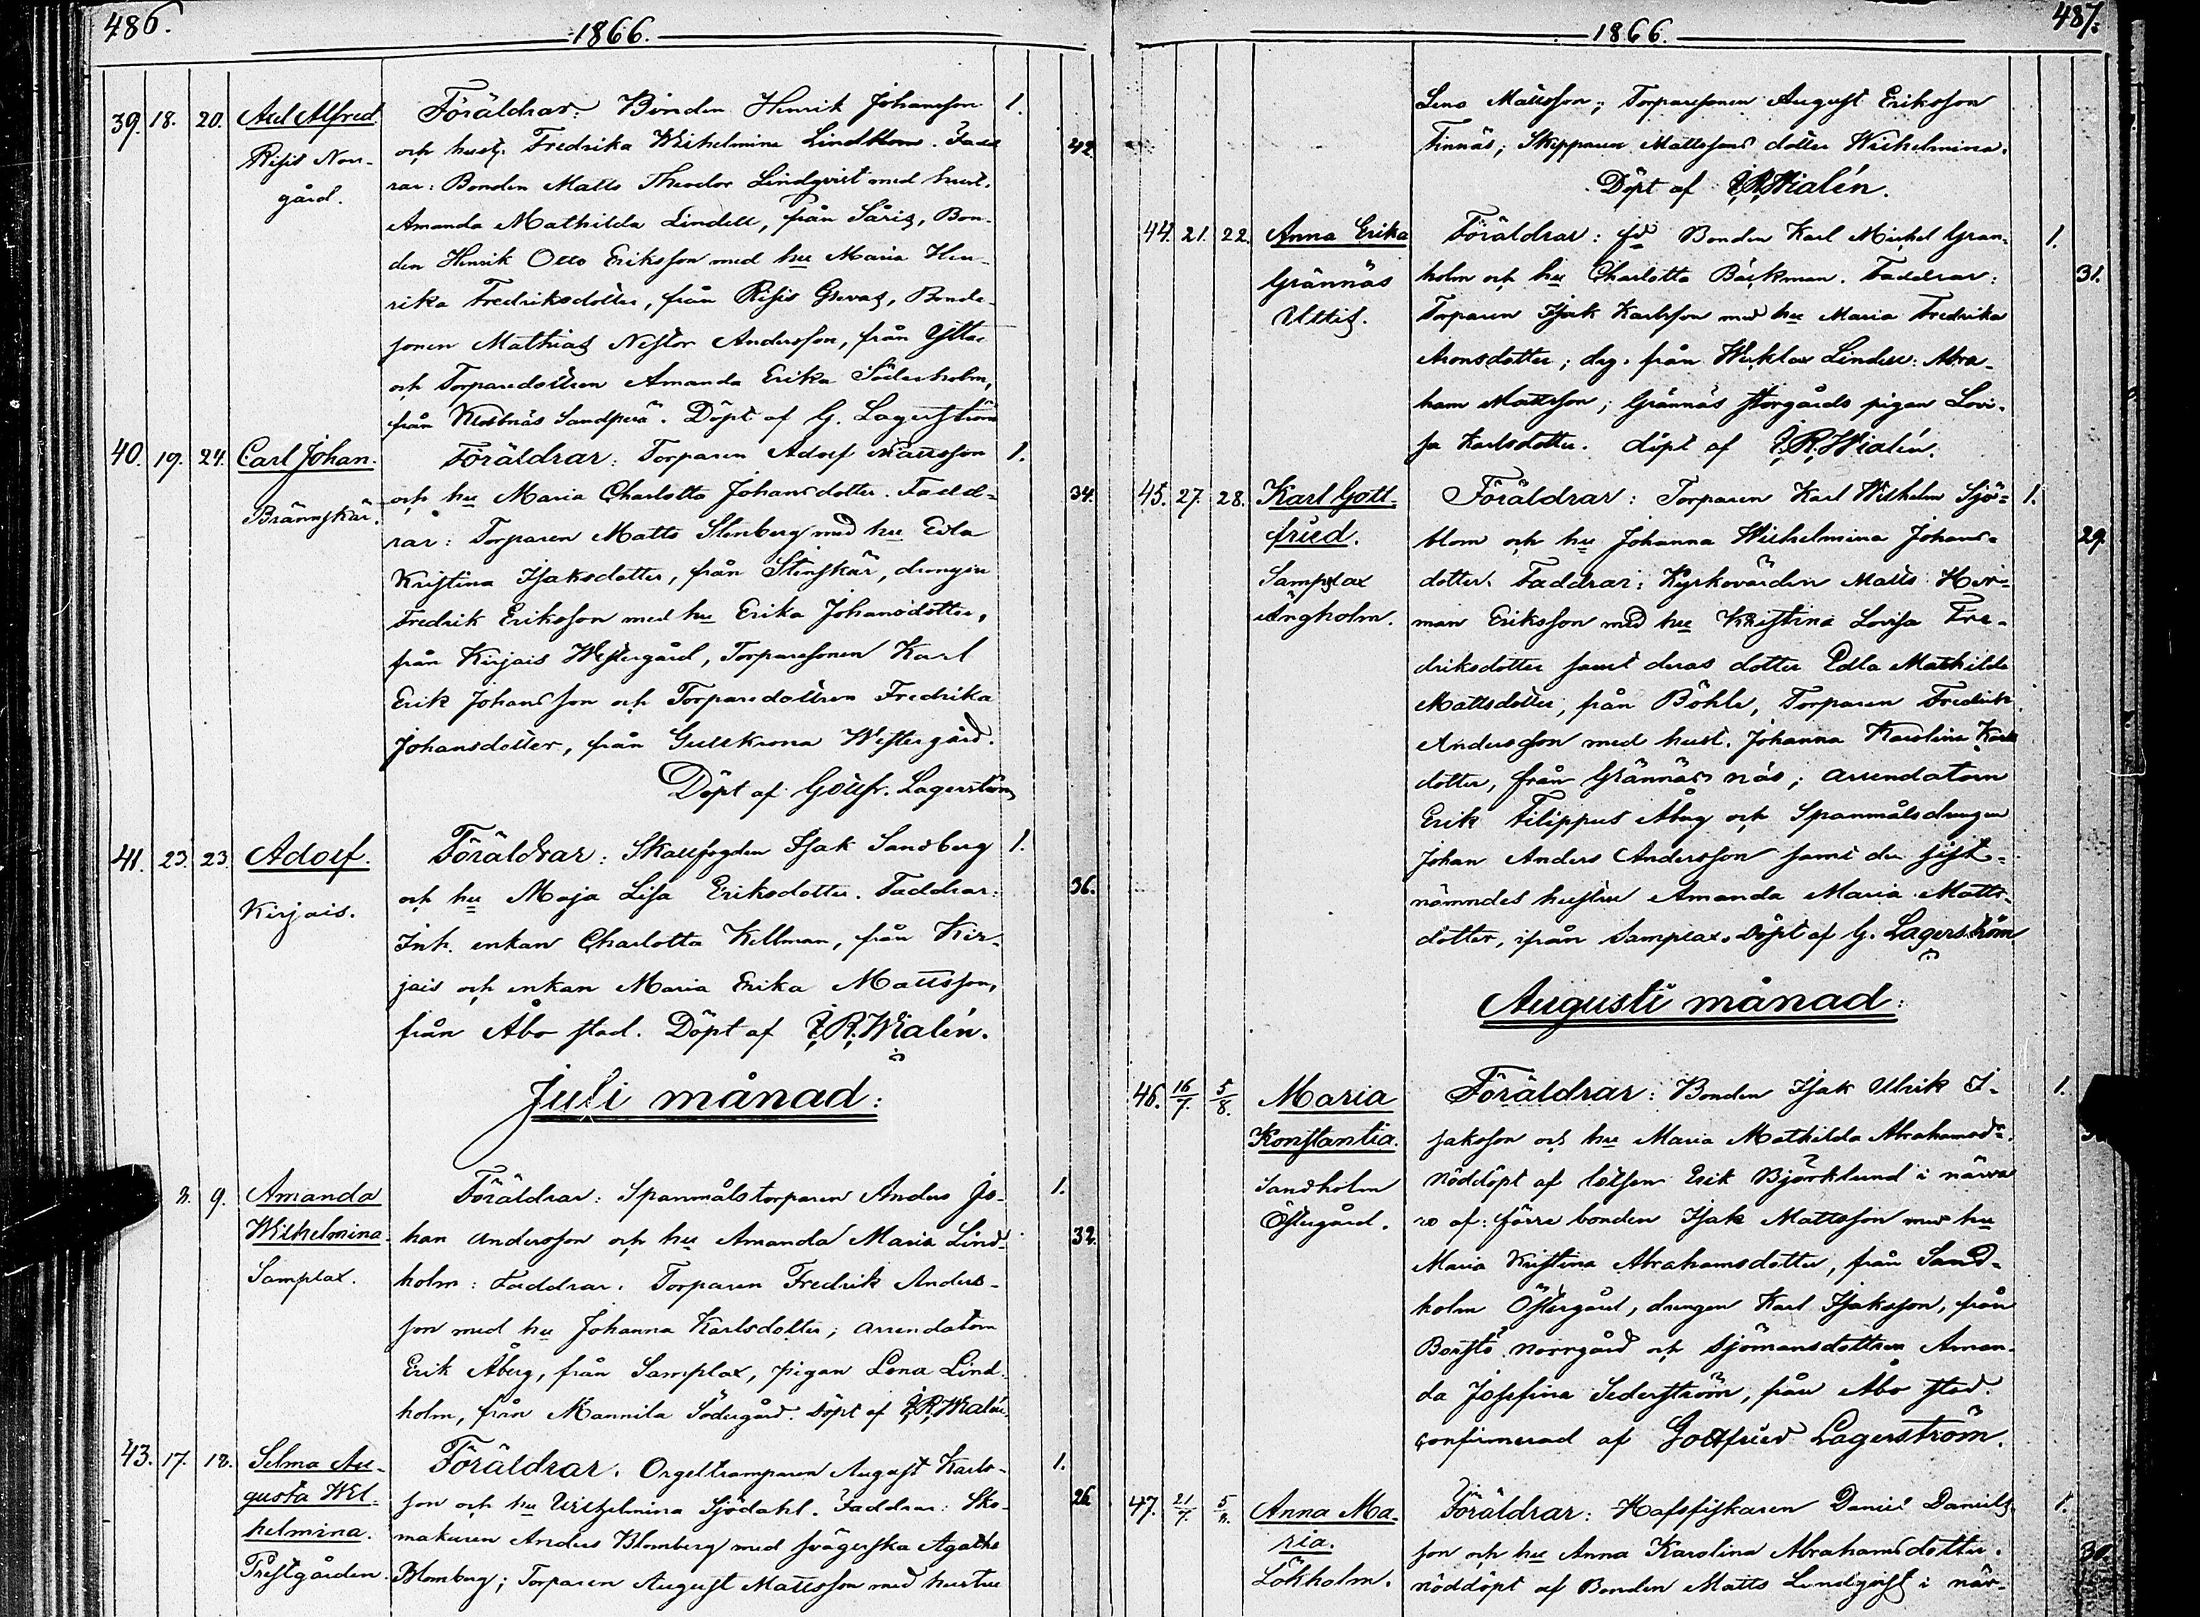 486.
1866.
39. 18. 20. Axel Alfred. Föräldrar: Bonden Henrik Johansson 1.
Risis Norrgård. och hust. Fredrika Wilhelmina Lindblom. Fadd- 42.
rar: Bonden Matts Theodor Lindqvist med hust.
Amanda Mathilda Lindell, från Bon-
den Henrik Otto Eriksson med hu Maria Hen-
rika Fredriksdotter, från Risis Grevas, Bonde-
sonen Mathias Nestor Andersson, från
och Torparedottren Amanda Erika Söderholm,
från Sandperä. Döpt af G. Lagerström
40. 19. 24. Carl Johan. Föräldrar: Torparen Adolf Mattsson 1.
Brännskär. och hu Maria Charlotta Johansdotter. Fadd- 34.
rar: Torparen Matts Stenberg med hu Edla
Kristina Isaksdotter, från Stenskär, drengen
Fredrik Eriksson med hu Erika Johansdotter,
från Kirjais Westergård, Torparesonen Karl
Erik Johansson och Torparedottren Fredrika
Johansdotter, från Gullkrona Westergård.
Döpt af Gottfr. Lagerström
41. 23. 23. Adolf. Föräldrar: Skallfogden Isak Sandberg 1.
Kirjais. och hu Maja Lisa Eriksdotter. Faddrar: 36.
Inh. enkan Charlotta Kellman, från Kir-
jais och enkan Maria Erika Mattsson,
från Åbo stad. Döpt af F. R. Wialén.
Juli månad:
8. 9. Amanda Föräldrar: Spanmålstorparen Anders Jo- 1.
Wilhelmina. han Andersson och hu Amanda Maria Lind- 32.
Samplax. holm: Faddrar: Torparen Fredrik Anders-
son med hu Johanna Karlsdotter; arrendatorn
Erik Åberg, från Samplax, pigan Lena Lind-
holm, från Mannila Södergård. Döpt af F. R. Wialén.
43. 17. 18. Selma Au- Föräldrar: Orgeltramparen August Karls- 1.
gusta Wil- son och hu Wilhelmina Sjödahl. Faddrar: Sko- 26.
helmina. makaren Anders Blomberg med svägerska Agatha
Prestgården. Blomberg; Torparen August Mattsson med hustru
487.
1866.
Lena Mattsson; Torparesonen August Eriksson
Finnäs; Skepparen Mattssons dotter Wilhelmina.
Döpt af F. R. Wialén.
44. 21. 22. Anna Erika Föräldrar: fd Bonden Karl Mickel Gran- 1.
Grännäs holm och hu Charlotta Bäckman. Faddrar: 31.
Uttis. Torparen Isak Karlsson med hu Maria Fredrika
Aronsdotter; drg. från Wicklax Lindell: Abra-
ham Mattsson; Grännäs storgårds pigan Lovi-
sa Karlsdotter. döpt af F. R. Wialén.
45. 27. 28. Karl Gott- Föräldrar: Torparen Karl Wilhelm Sjö- 1.
fried. blom och hu Johanna Wilhelmina Johans- 29.
Samplax dotter. Faddrar: Kyrkovärden Matts Her-
Ängholm. man Eriksson med hu Kristina Lovisa Fre-
driksdotter samt deras dotter Edla Mathilda
Mattsdotter, från Böhle, Torparen Fredrik
Andersson med hust. Johanna Karolina Karls
dotter, från Grännäs näs; arrendatorn
Erik Filippus Åberg och Spanmålsdrengen
Johan Anders Andersson samt den sist-
nämndes hustru Amanda Maria Matts-
dotter, ifrån Samplax. Döpt af G. Lagerström
Augusti månad:
46. 16/7. 5/8. Maria Föräldrar: Bonden Isak Ulrik I- 1.
Konstantia. saksson och hu Maria Mathilda Abrahamsd:r
Sandholm Nöddöpt af lotsen Erik Björklund i närva
Östergård. ro af: förre bonden Isak Mattsson med hu
Maria Kristina Abrahamsdotter, från Sand-
holm Östergård, drengen Karl Isaksson, från
Borstö Norrgård och Sjömansdottren Aman-
da Josefina Sederström, från Åbo stad.
Confirmerad af Gottfried Lagerström.
47. 21/7. 5/8. Anna Ma- Föräldrar: Hafsfiskaren Daniel Daniels- 1.
ria. son och hu Anna Karolina Abrahamsdotter. 30.
Lökholm. nöddöpt af Bonden Matts Lindqvist i när-